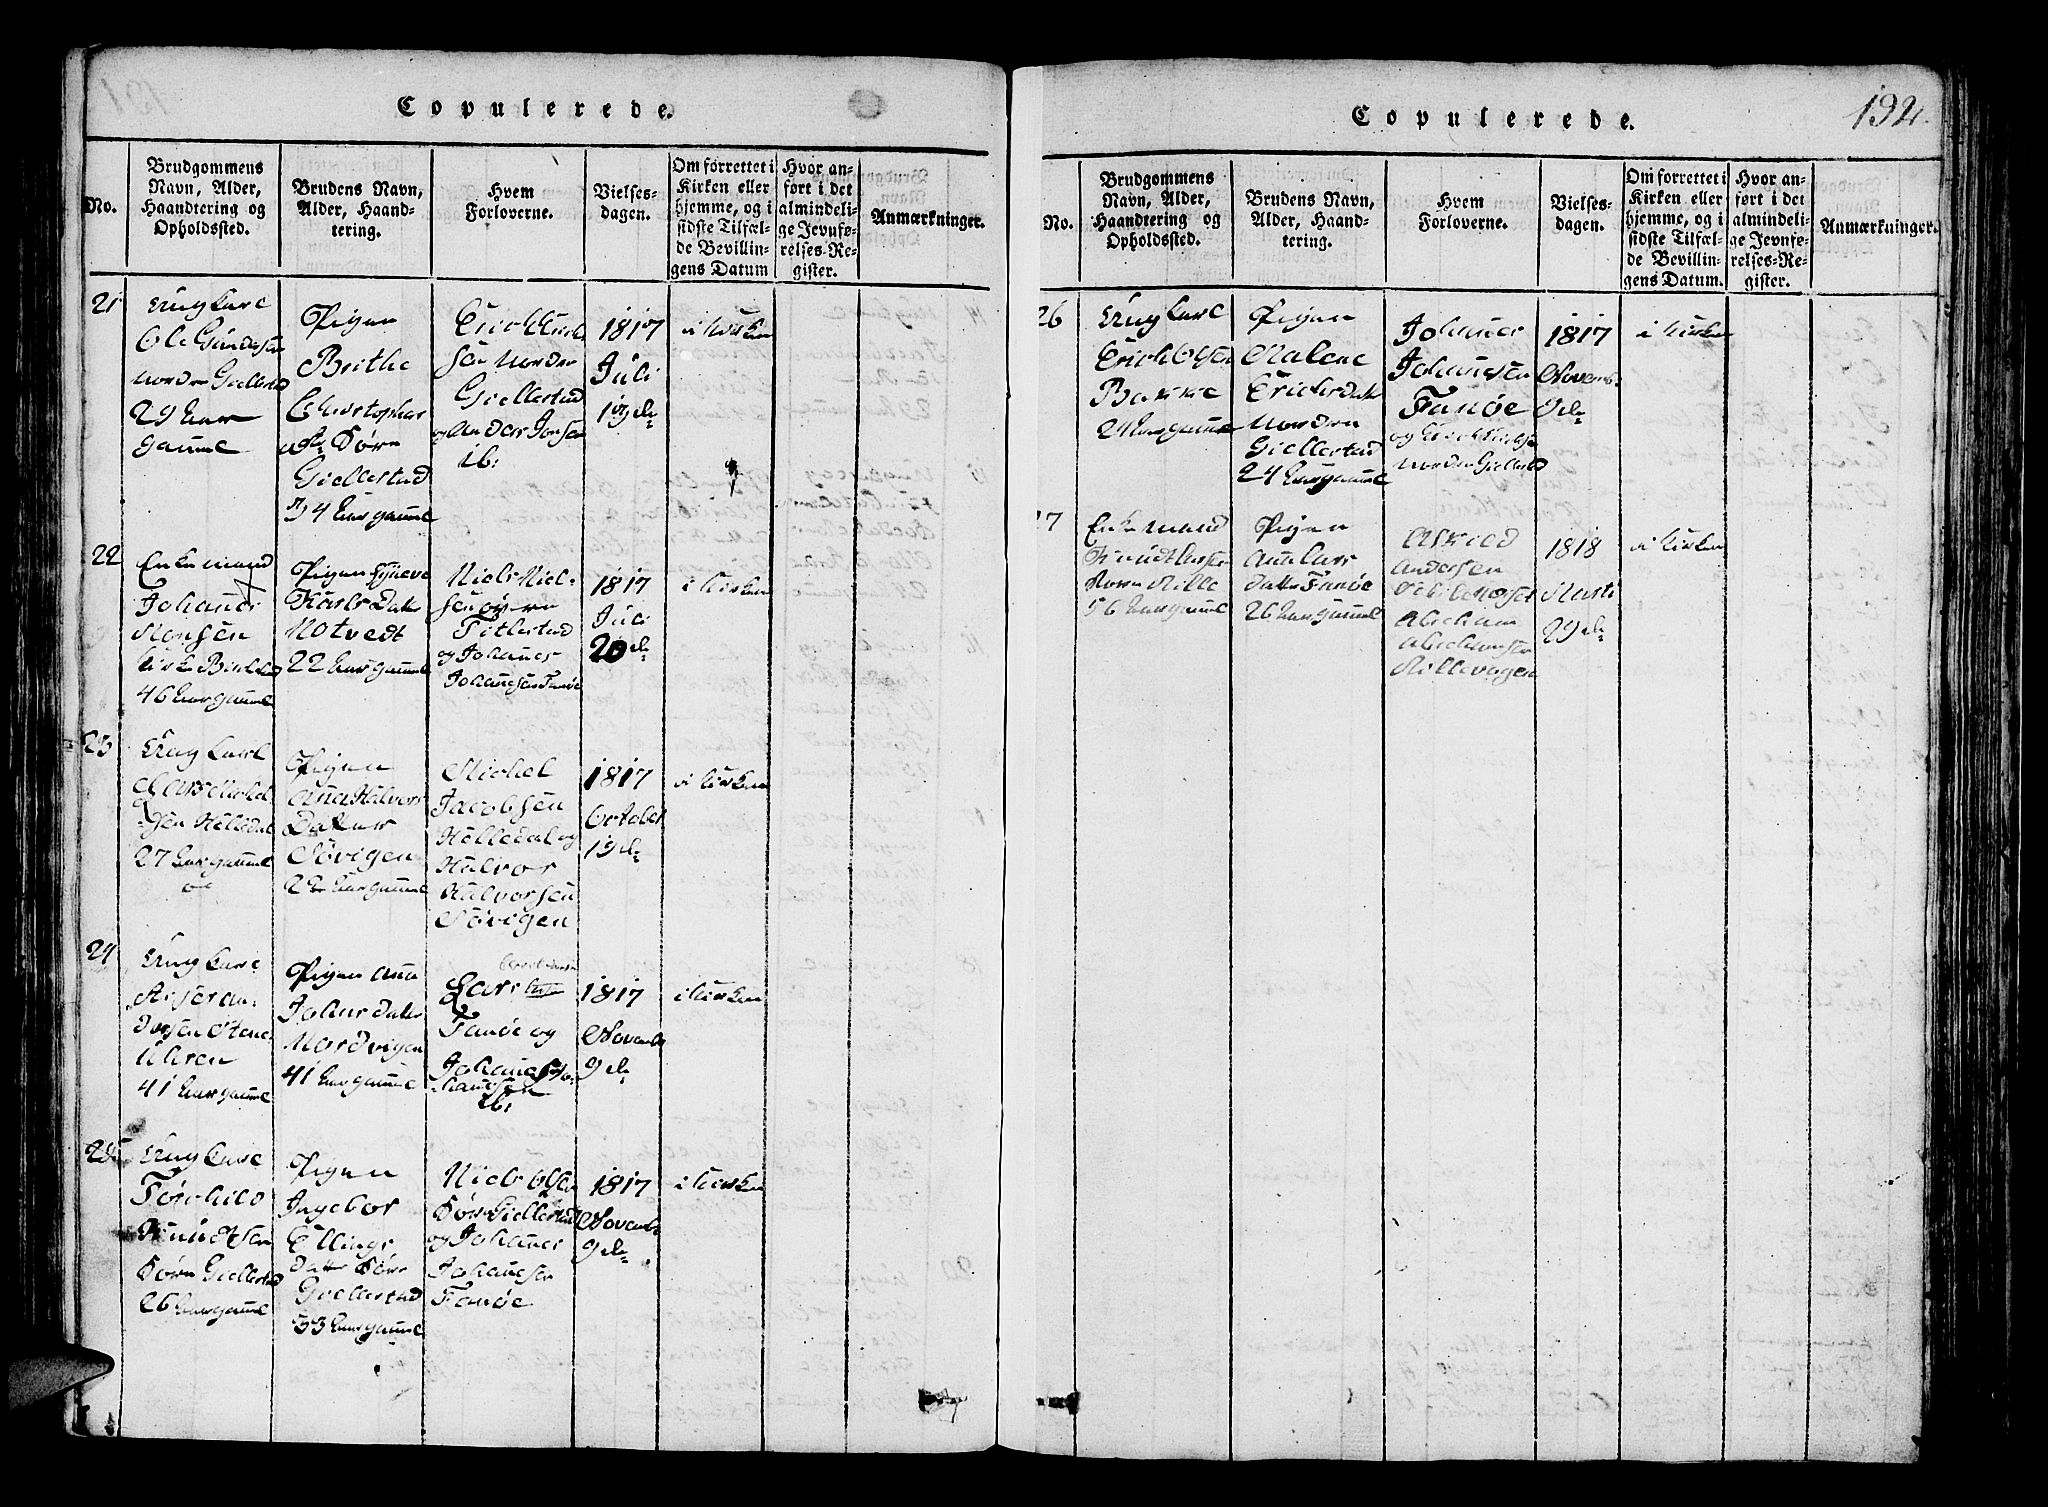 Copulerede.
No.
Brudgommens
Navn, Alder,
Haandtering og
Opholdssted.
Brudens Navn,
Alder, Haand-
tering.
Hvem
Forloverne.
Vielses-
dagen.
Om forrettet i
Kirken eller
hjemme, og i
sidste Tilfæl-
de Bevillin-
gens Datum
Hvor an-
ført i det
almindeli-
ge Jevnfø-
relses-Re-
gister.
Anmærkninger.
21
Ung Karl
Ole
Nordre Giellestad
29 Aar
gamml
Pigen
Brithe
Christophers
Dr Søre
Giellestad
34 Aar gamml
Erich
sen Nordre
Giellestad
og Anders Jonsen
ib:
1817
Juli
19de
i Kirken
22
Enkemand
Johannes
Monsen
46 Aar gamml
Pigen Synneve
Karls Datter
Notvedt
22 Aar gamml
Niels Niel-
sen Øvre
Titlestad
og Johannes
Johannesen Fanøe
1817
Juli
20de
i Kirken
23
Ung Karl
sen Helledal
27 Aar gamml
Pigen
Anna Halvors
Datter
Søvigen
22 Aar gamml
Michel
Jacobsen
Helledal og
Halvor
Halvorsen
Søvigen
1817
October
19de
i Kirken
24
Ung Karl
Uhren
41 Aar gamml
Pigen Anna
Johans datter
Nordvigen
41 Aar gamml
Lars
Fanøe og
Johannes Jo-
hannesen
ib:
1817
Novemb
9de
i Kirken
25
Ung Karl
Torkild
Knudtsen
Søre Giellestad
26 Aar gamml
Pigen
Ingebor
Ellings
Datter Søre
Giellestad
33 Aar gamml
Niels Olsen
Sør Giellestad
og Johannes
Johannesen
Fanøe
1817
Novemb
9de
i Kirken
Copulerede.
192.
No.
Brudgommens
Navn, Alder,
Haandtering og
Opholdssted.
Brudens Navn,
Alder, Haand-
tering.
Hvem
Forloverne.
Vielses-
dagen.
Om forrettet i
Kirken eller
hjemme, og i
sidste Tilfæl-
de Bevillin-
gens Datum.
Hvor an-
ført i det
almindeli-
ge Jevnfø-
relses-Re-
gister.
Anmærkninger.
26
Ung Karl
Erich Olsen
Bakke
24 Aar gamml
Pigen
Malene
Erichs Datter
Nordre
Giellestad
24 Aar gamml
Johannes
Johannesen
Fanøe
og Erich
Nordre Giellestad
1817
Novemb.
9de
i Kirken
27
Enkemand
Knudt Larsen
56 Aar gamml
Pigen
Anna Lars
Datter Fanøe
26 Aar gamml
Andersen
Abraham
Abrahamsen
Millevogen
1818
Marti
29de
i Kirken